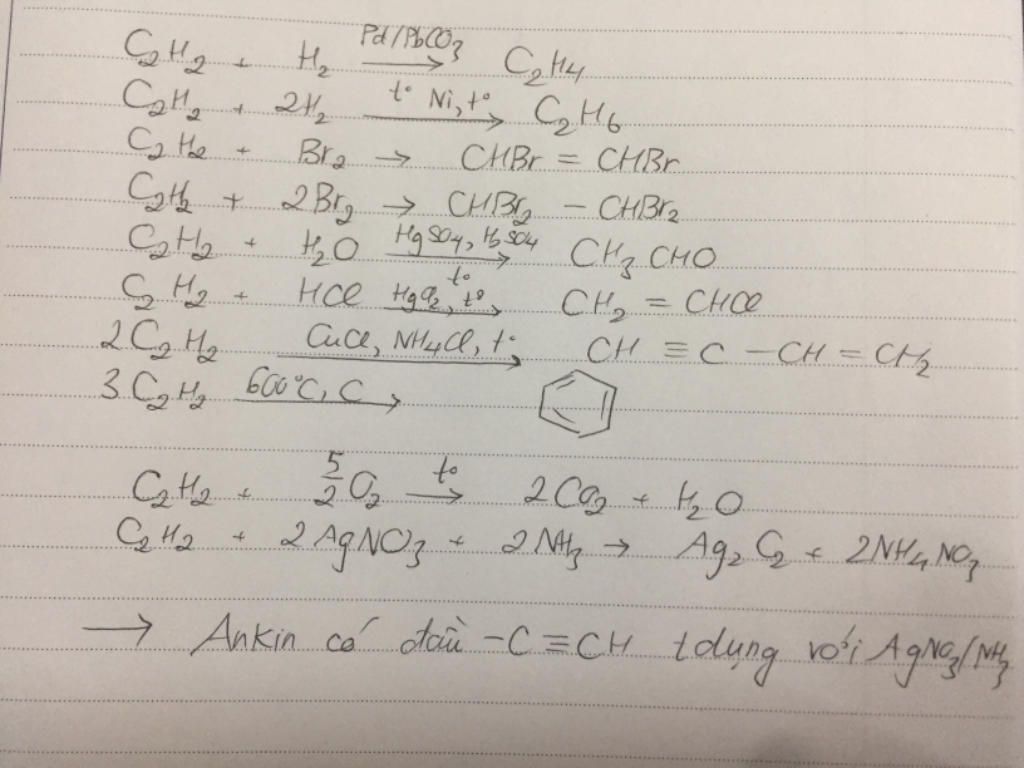 C₂H₂ + H₂ →(Pd/PbCO₃, t°) C₂H₄
C₂H₂ + 2H₂ →(Ni, t°) C₂H₆
C₂H₂ + Br₂ → CHBr = CHBr
C₂H₂ + 2Br₂ → CHBr₂ – CHBr₂
C₂H₂ + H₂O →(HgSO₄, H₂SO₄, t°) CH₃CHO
C₂H₂ + HCl →(HgCl₂, t°) CH₂ = CHCl
2C₂H₂ →(CuCl, NH₄Cl, t°) CH ≡ C – CH = CH₂
3C₂H₂ →(600°C, C)
C₂H₂ + 5/2 O₂ →(t°) 2CO₂ + H₂O
C₂H₂ + 2AgNO₃ + 2NH₃ → Ag₂C₂ + 2NH₄NO₃
→ Ankin có đầu –C ≡ CH tdụng với AgNO₃/NH₃